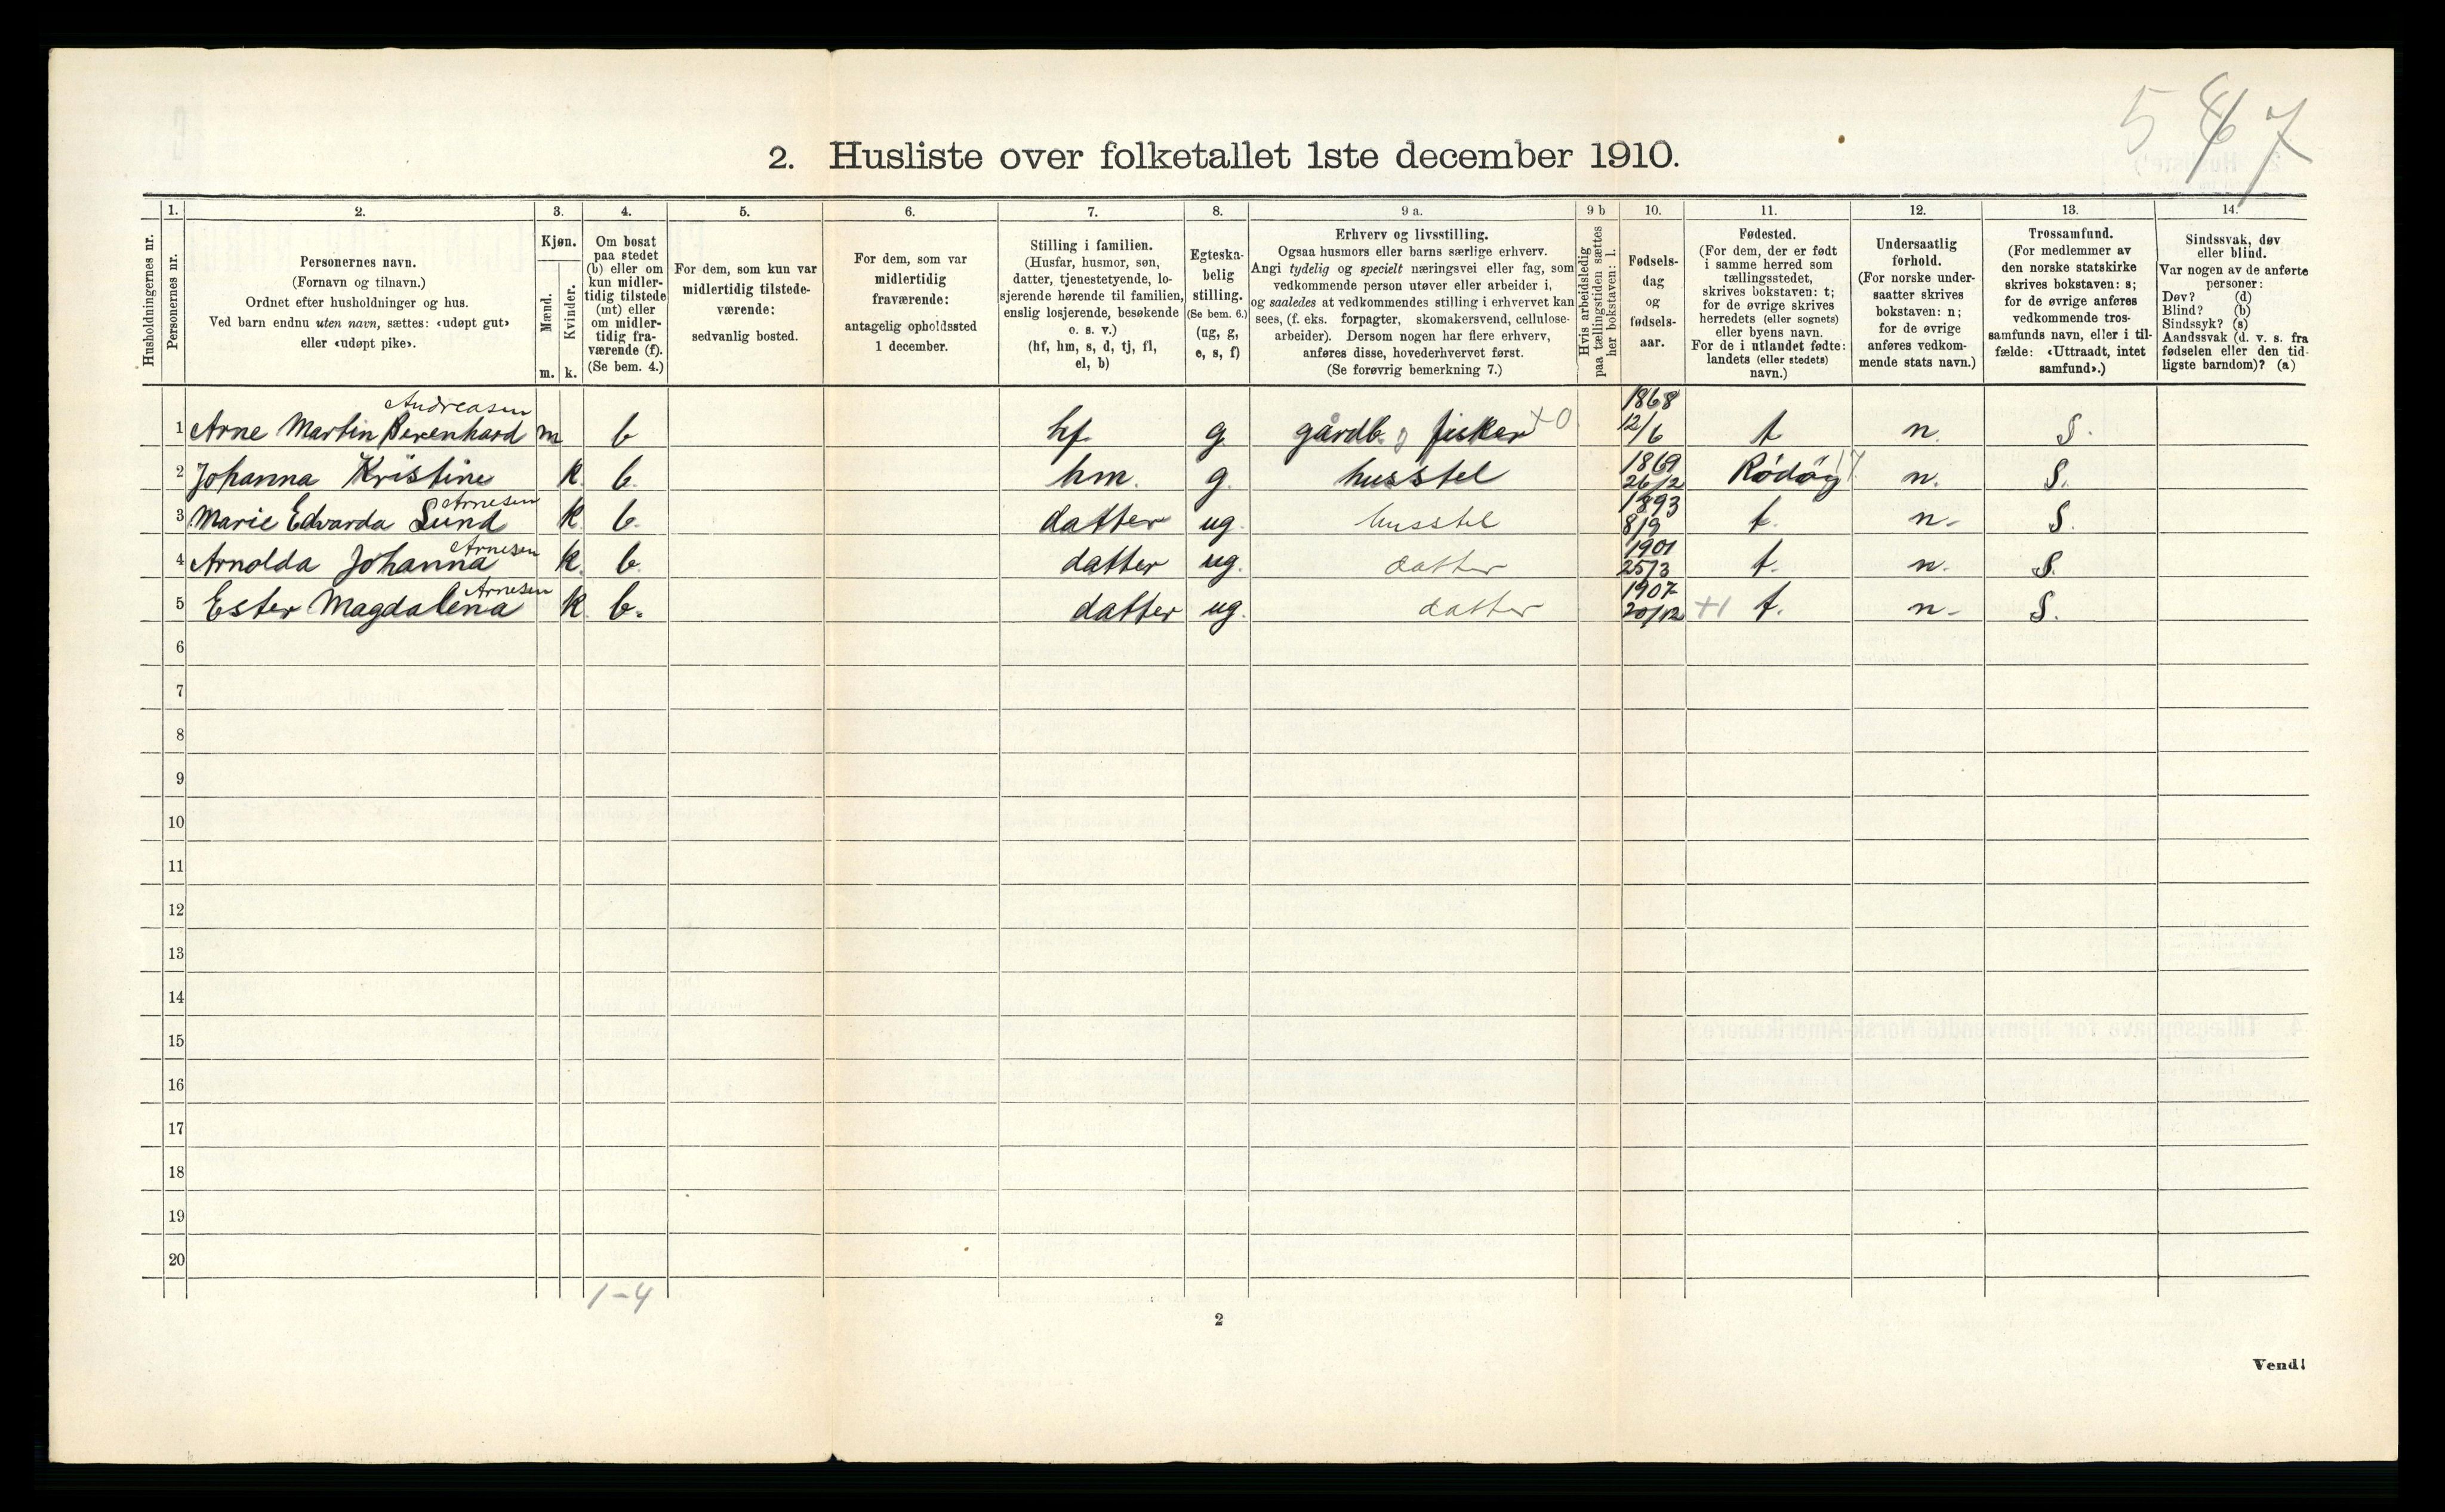 5 4 7
2. Husliste over folketallet 1ste december 1910.
1. 2. 3. 4. 5. 6. 7. 8. 9 a. 9 b 10. 11. 12. 13. 14.
Husholdningernes nr.
Personernes nr.
Personernes navn.
(Fornavn og tilnavn.)
Ordnet efter husholdninger og hus.
Ved barn endnu uten navn, sættes: «udøpt gut»
eller «udøpt pike».
Kjøn.
Mænd.
Kvinder.
m. k.
Om bosat
paa stedet
(b) eller om
kun midler-
tidig tilstede
(mt) eller
om midler-
tidig fra-
værende (f).
(Se bem. 4.)
For dem, som kun var
midlertidig tilstede-
værende:
sedvanlig bosted.
For dem, som var
midlertidig
fraværende:
antagelig opholdssted
1 december.
Stilling i familien.
(Husfar, husmor, søn,
datter, tjenestetyende, lo-
sjerende hørende til familien,
enslig losjerende, besøkende
o. s. v.)
(hf, hm, s, d, tj, fl,
el, b)
Egteska-
belig
stilling.
(Se bem. 6.)
(ug, g,
e, s, f)
Erhverv og livsstilling.
Ogsaa husmors eller barns særlige erhverv.
Angi tydelig og specielt næringsvei eller fag, som
vedkommende person utøver eller arbeider i,
og saaledes at vedkommendes stilling i erhvervet kan
sees, (f. eks. forpagter, skomakersvend, cellulose-
arbeider). Dersom nogen har flere erhverv,
anføres disse, hovederhvervet først.
(Se forøvrig bemerkning 7.)
Hvis arbeidsledig
paa tællingstiden sættes
her bokstaven: l.
Fødsels-
dag
og
fødsels-
aar.
Fødested.
(For dem, der er født
i samme herred som
tællingsstedet,
skrives bokstaven: t;
for de øvrige skrives
herredets (eller sognets)
eller byens navn.
For de i utlandet fødte:
landets (eller stedets)
navn.)
Undersaatlig
forhold.
(For norske under-
saatter skrives
bokstaven: n;
for de øvrige
anføres vedkom-
mende stats navn.)
Trossamfund.
(For medlemmer av
den norske statskirke
skrives bokstaven: s;
for de øvrige anføres
vedkommende tros-
samfunds navn, eller i til-
fælde: «Uttraadt, intet
samfund».)
Sindssvak, døv
eller blind.
Var nogen av de anførte
personer:
Døv? (d)
Blind? (b)
Sindssyk? (s)
Aandssvak (d. v. s. fra
fødselen eller den tid-
ligste barndom)? (a)
Andreasen 1868
1 Arne Martin Berenhard m b hf. g. gårdb. og fisker +0 12/6 t n. S.
1869
2 Johanna Kristine k. b. hm. g. husstel 26/2 Rödöy 17. n. S.
Arnesen 1893
3 Marie Edvarda Lund k. b. datter ug. husstel 8/9 t. n. S.
Arnesen 1901
4 Arnolda Johanna k. b. datter ug. datter 25/3 t. n. S.
Arnesen 1907
5 Ester Magdalena k. b. datter ug. datter 20/12 +1 t. n. S.
6
7
8
9
10
11
12
13
14
15
16
17
18
19
20
1-4
2
Vend!